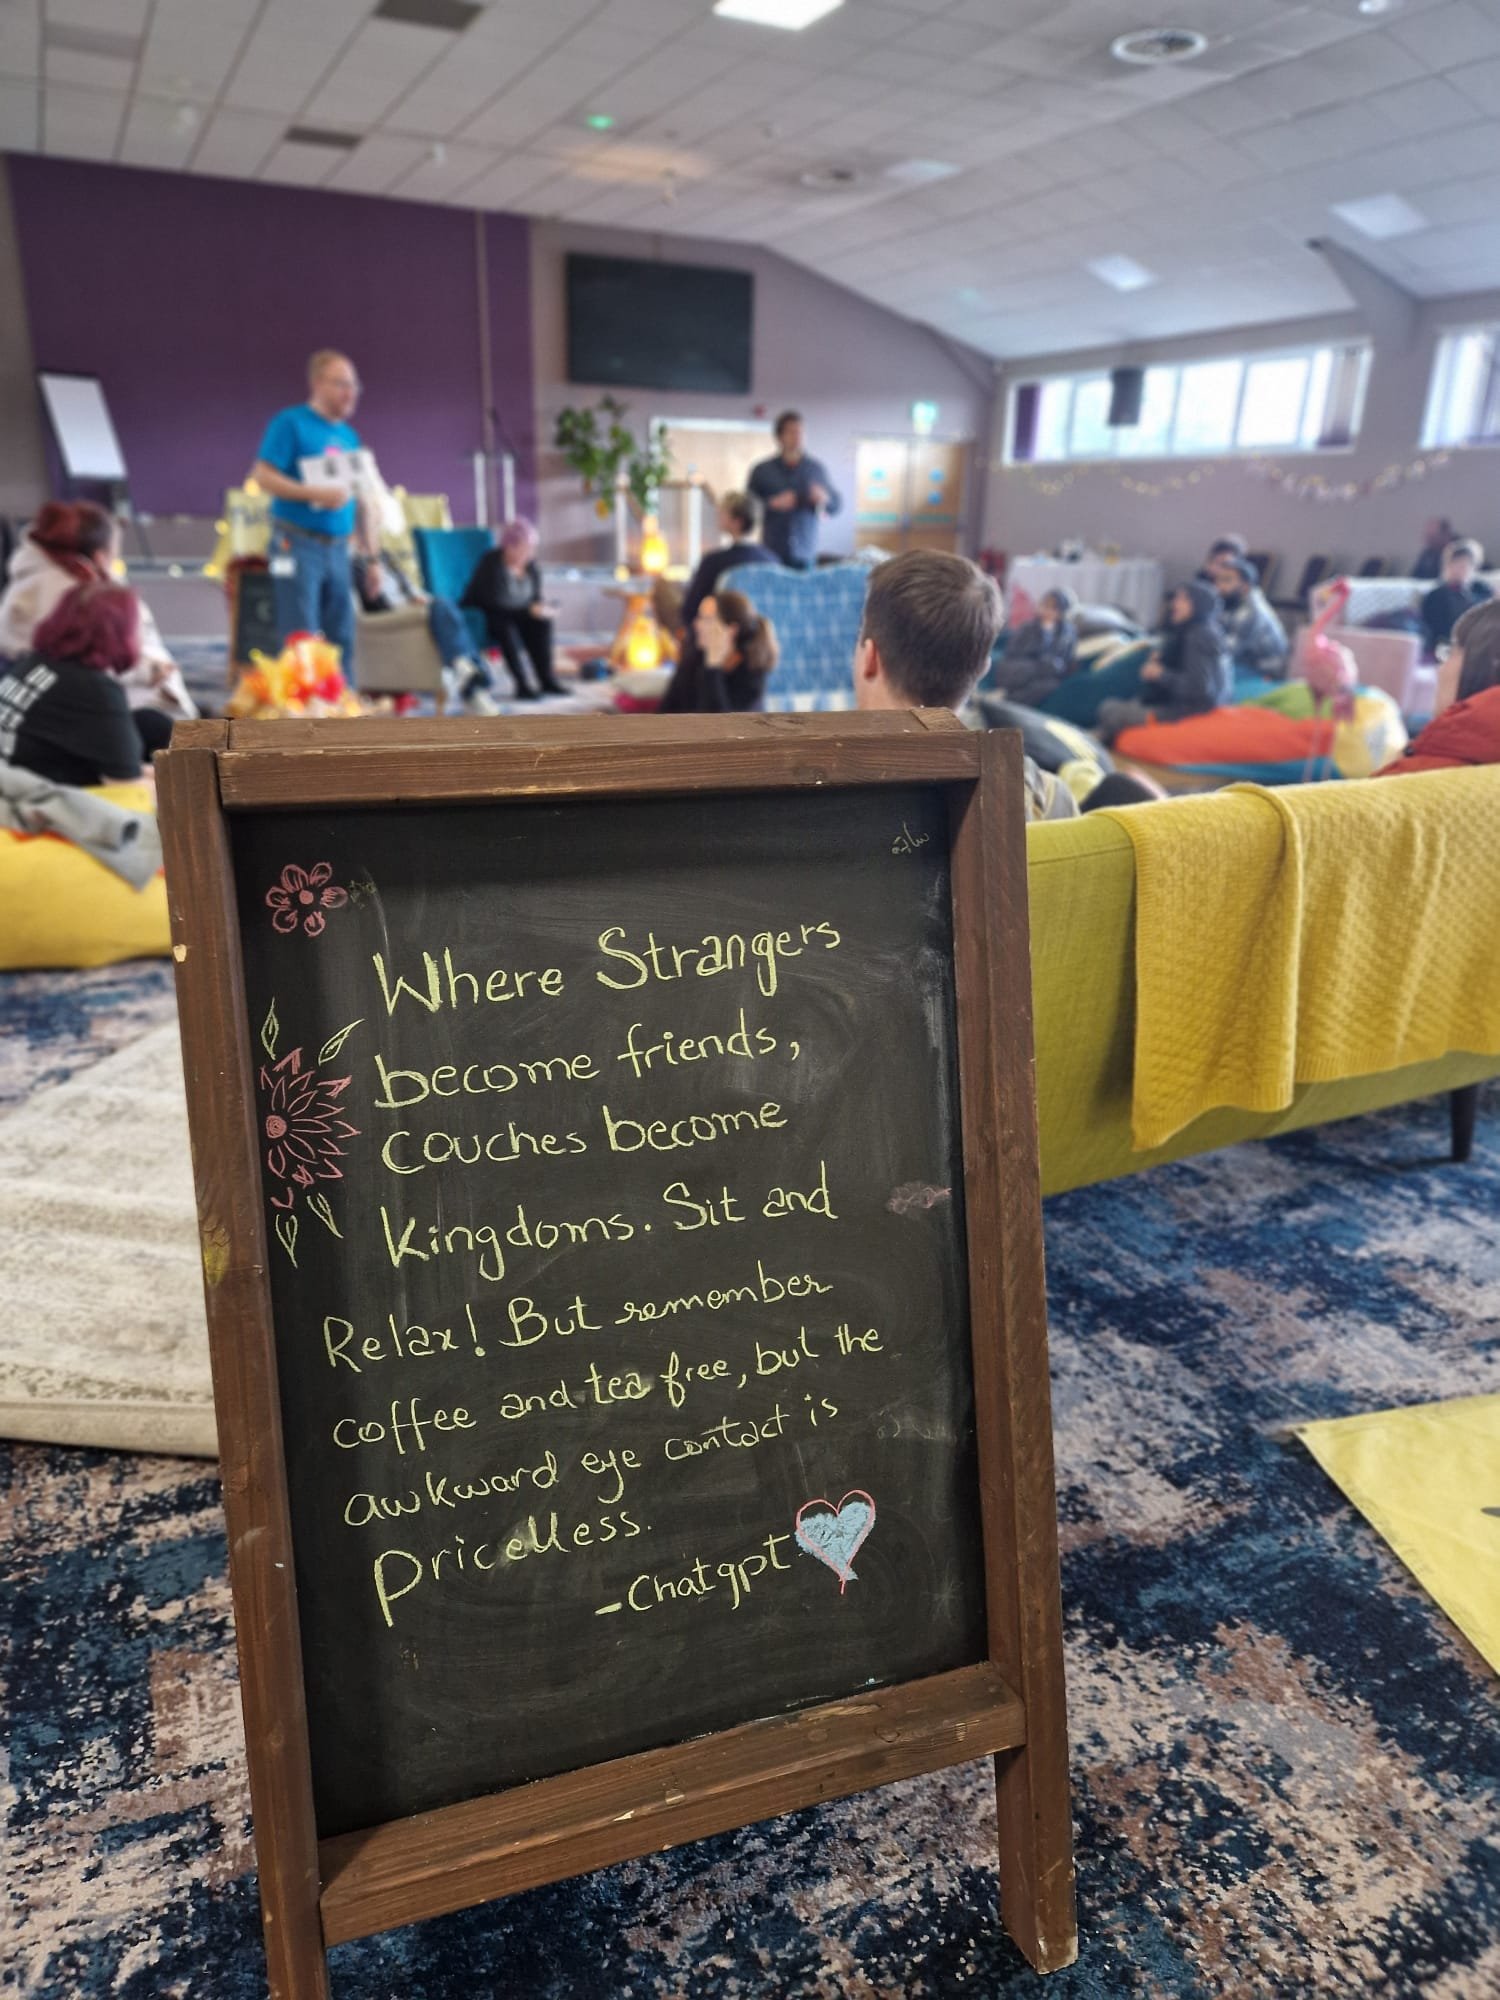 Where Strangers
become friends,
couches become
kingdoms. Sit and
Relax! But remember
coffee and tea free, but the
awkward eye contact is
Pricelless.
-Chatgpt